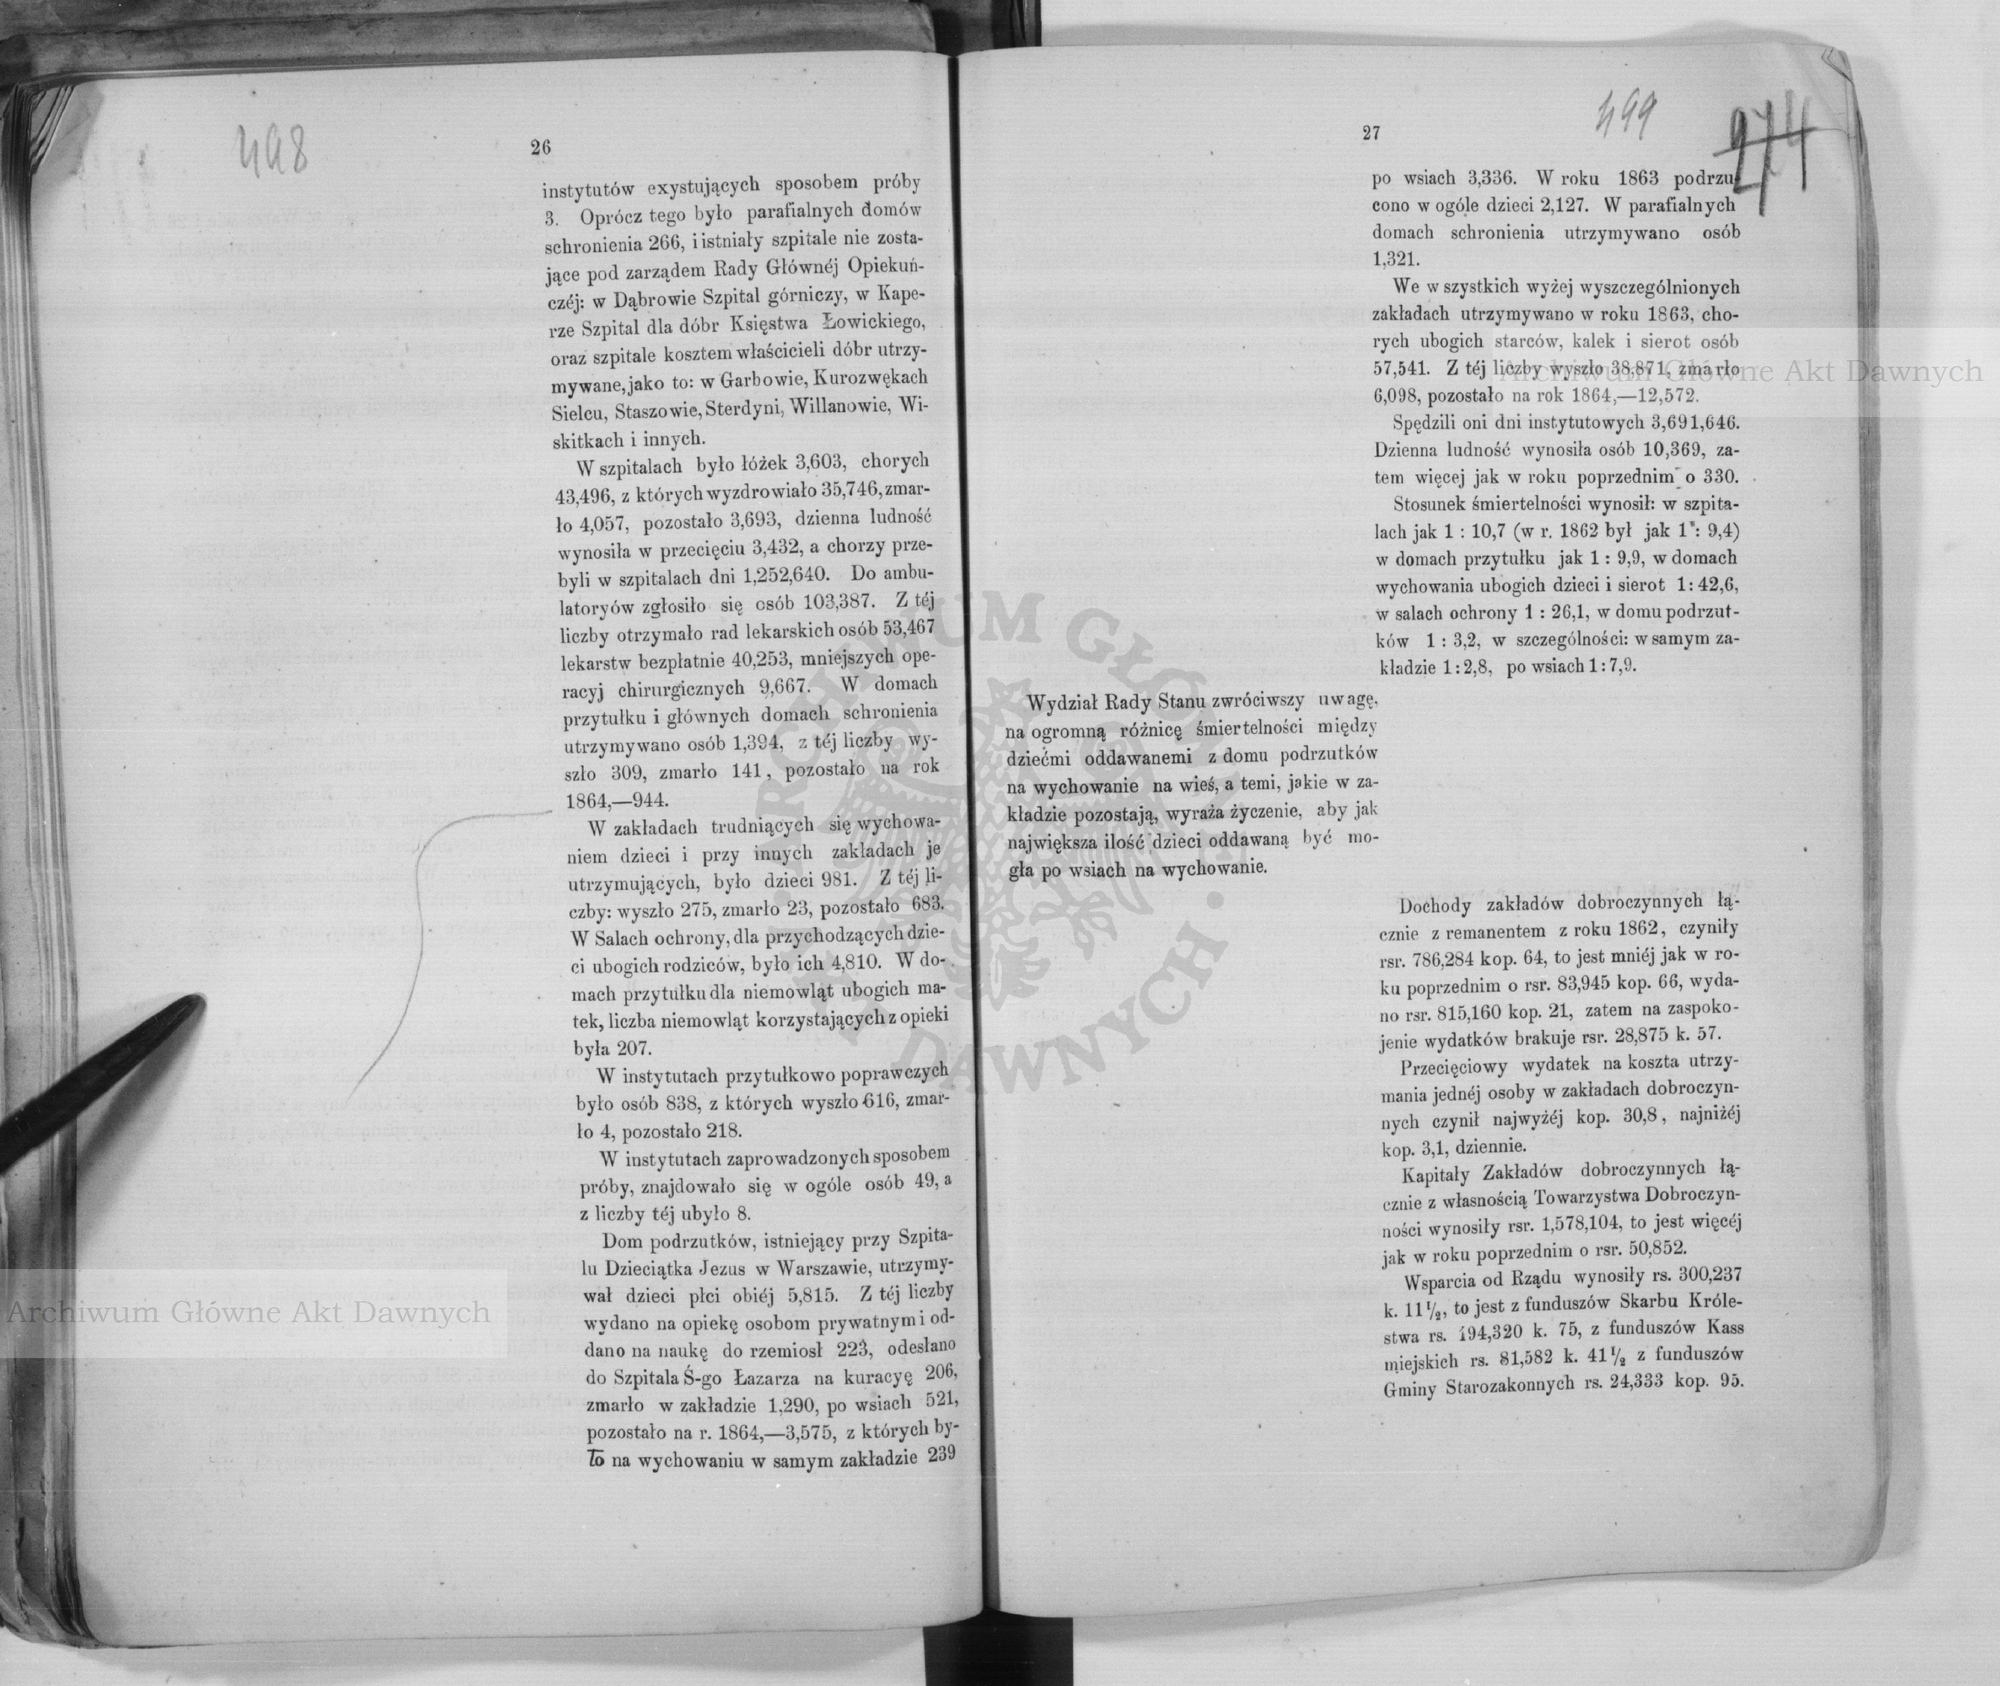 498
26
instytutów exystujących sposobem próby
3. Oprócz tego było parafialnych domów
schronienia 266, i istniały szpitale nie zosta-
jące pod zarządem Rady Głównéj Opiekuń-
czéj: w Dąbrowie Szpital górniczy, w Kape-
rze Szpital dla dóbr Księstwa Łowickiego,
oraz szpitale kosztem właścicieli dóbr utrzy-
mywane, jako to: w Garbowie, Kurozwękach
Sielcu, Staszowie, Sterdyni, Willanowie, Wi-
skitkach i innych.
W szpitalach było łóżek 3,603, chorych
43,496, z których wyzdrowiało 35,746, zmar-
ło 4,057, pozostało 3,693, dzienna ludność
wynosiła w przecięciu 3,432, a chorzy prze-
byli w szpitalach dni 1,252,640. Do ambu-
latoryów zgłosiło się osób 103,387. Z téj
liczby otrzymało rad lekarskich osób 53,467
lekarstw bezpłatnie 40,253, mniejszych ope-
racyj chirurgicznych 9,667. W domach
przytułku i głównych domach schronienia
utrzymywano osób 1,394, z téj liczby wy-
szło 309, zmarło 141, pozostało na rok
1864,—944.
W zakładach trudniących się wychowa-
niem dzieci i przy innych zakładach je
utrzymujących, było dzieci 981. Z téj li-
czby: wyszło 275, zmarło 23, pozostało 683.
W Salach ochrony, dla przychodzących dzie-
ci ubogich rodziców, było ich 4,810. W do-
mach przytułku dla niemowląt ubogich ma-
tek, liczba niemowląt korzystających z opieki
była 207.
W instytutach przytułkowo poprawczych
było osób 838, z których wyszło 616, zmar-
ło 4, pozostało 218.
W instytutach zaprowadzonych sposobem
próby, znajdowało się w ogóle osób 49, a
z liczby téj ubyło 8.
Dom podrzutków, istniejący przy Szpita-
lu Dzieciątka Jezus w Warszawie, utrzymy-
wał dzieci płci obiéj 5,815. Z téj liczby
wydano na opiekę osobom prywatnym i od-
dano na naukę do rzemiosł 223, odesłano
do Szpitala Ś-go Łazarza na kuracyę 206,
zmarło w zakładzie 1,290, po wsiach 521,
pozostało na r. 1864,—3,575, z których by-
ło na wychowaniu w samym zakładzie 239
499
274
27
po wsiach 3,336. W roku 1863 podrzu-
cono w ogóle dzieci 2,127. W parafialnych
domach schronienia utrzymywano osób
1,321.
We wszystkich wyżej wyszczególnionych
zakładach utrzymywano w roku 1863, cho-
rych ubogich starców, kalek i sierot osób
57,541. Z téj liczby wyszło 38,871, zmarło
6,098, pozostało na rok 1864,—12,572.
Spędzili oni dni instytutowych 3,691,646.
Dzienna ludność wynosiła osób 10,369, za-
tem więcej jak w roku poprzednim o 330.
Stosunek śmiertelności wynosił: w szpita-
lach jak 1 : 10,7 (w r. 1862 był jak 1 : 9,4)
w domach przytułku jak 1 : 9,9, w domach
wychowania ubogich dzieci i sierot 1 : 42,6,
w salach ochrony 1 : 26,1, w domu podrzut-
ków 1 : 3,2, w szczególności: w samym za-
kładzie 1 : 2,8, po wsiach 1 : 7,9.
Wydział Rady Stanu zwróciwszy uwagę,
na ogromną różnicę śmiertelności między
dziećmi oddawanemi z domu podrzutków
na wychowanie na wieś, a temi, jakie w za-
kładzie pozostają, wyraża życzenie, aby jak
największa ilość dzieci oddawaną być mo-
gła po wsiach na wychowanie.
Dochody zakładów dobroczynnych łą-
cznie z remanentem z roku 1862, czyniły
rsr. 786,284 kop. 64, to jest mniéj jak w ro-
ku poprzednim o rsr. 83,945 kop. 66, wyda-
no rsr. 815,160 kop. 21, zatem na zaspoko-
jenie wydatków brakuje rsr. 28,875 k. 57.
Przecięciowy wydatek na koszta utrzy-
mania jednéj osoby w zakładach dobroczyn-
nych czynił najwyżéj kop. 30,8, najniżéj
kop. 3,1, dziennie.
Kapitały Zakładów dobroczynnych łą-
cznie z własnością Towarzystwa Dobroczyn-
ności wynosiły rsr. 1,578,104, to jest więcéj
jak w roku poprzednim o rsr. 50,852.
Wsparcia od Rządu wynosiły rs. 300,237
k. 11½, to jest z funduszów Skarbu Króle-
stwa rs. 194,320 k. 75, z funduszów Kass
miejskich rs. 81,582 k. 41½ z funduszów
Gminy Starozakonnych rs. 24,333 kop. 95.
Archiwum Główne Akt Dawnych
Archiwum Główne Akt Dawnych
ARCHIWUM GŁÓWNE AKT DAWNYCH